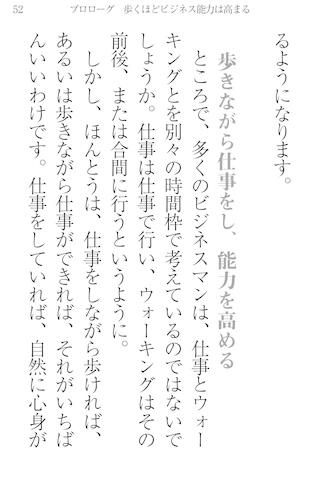 52
プロローグ 歩くほどビジネス能力は高まる
るようになります。
歩きながら仕事をし、能力を高める
ところで、多くのビジネスマンは、仕事とウォー
キングとを別々の時間枠で考えているのではないで
しょうか。仕事は仕事で行い、ウォーキングはその
前後、または合間に行うというように。
しかし、ほんとうは、仕事をしながら歩ければ、
あるいは歩きながら仕事ができれば、それがいちば
んいいわけです。仕事をしていれば、自然に心身が